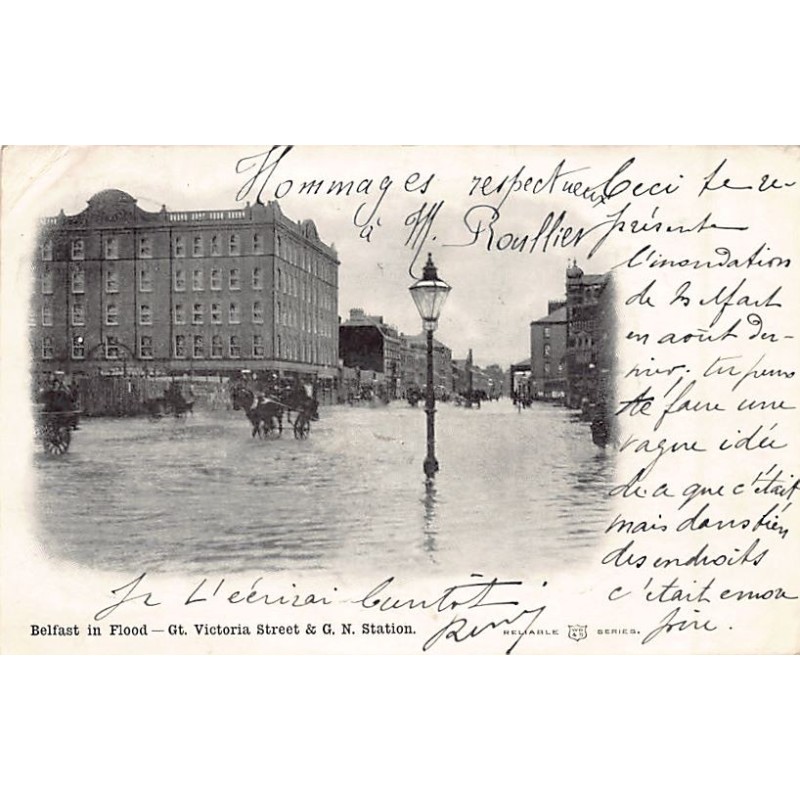 Hommages respectueux
à M. Roullier
Ceci te re-
présente
l'inondation
de Belfast
en août der-
nier; tu peux
te faire une
vague idée
de ce que c'était
mais dans bien
des endroits
c'était encore
pire.
Je t'écrirai bientôt
Belfast in Flood — Gt. Victoria Street & G. N. Station.
RELIABLE WR & S SERIES.